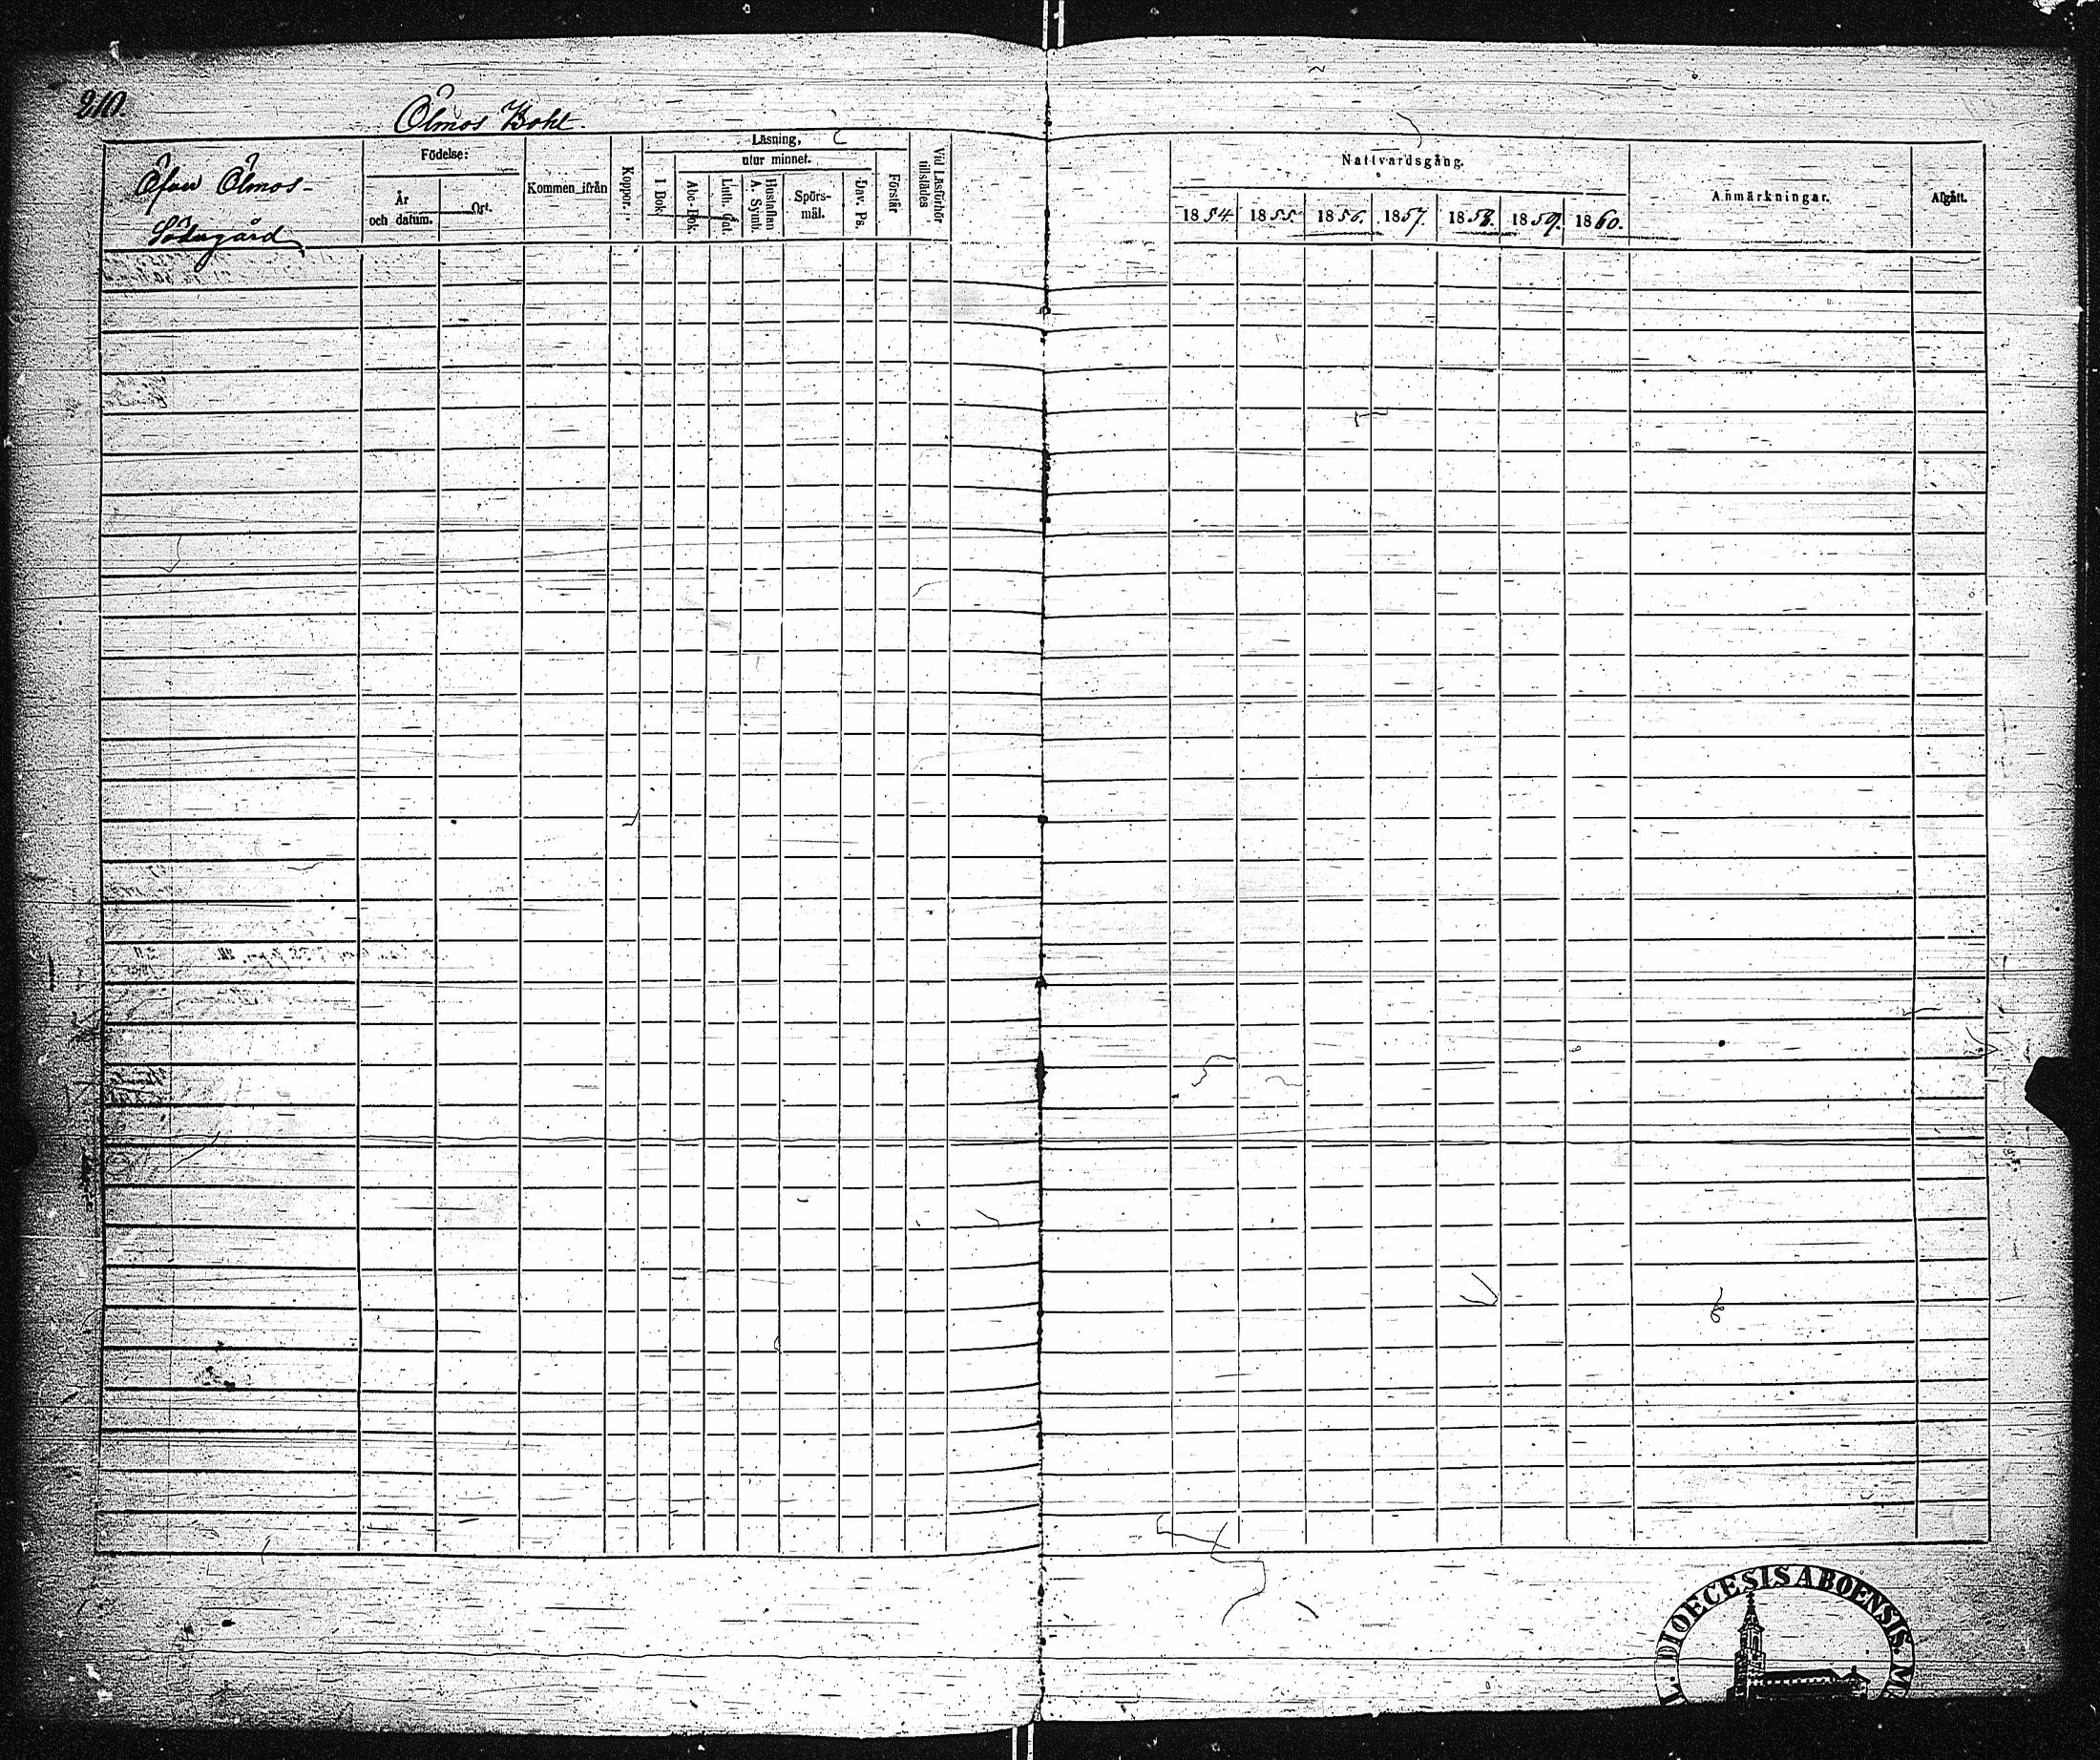 210.
Ölmos Bohl
Öfver Ölmos-
Södergård
Födelse:
År
och datum.
Ort.
Kommen ifrån
Koppor.
Läsning,
utur minnet.
I Bok.
Abc-Bok.
Luth. Cat.
Hustaflan
A. Symb.
Spörs-
mål.
Dav. Ps.
Förstår
Vid Läsförhör
tillstädes
Nattvardsgång.
1854 1855. 1856. 1857. 1858. 1859. 1860.
Anmärkningar.
Afgått.
DIOECESIS ABOENSIS